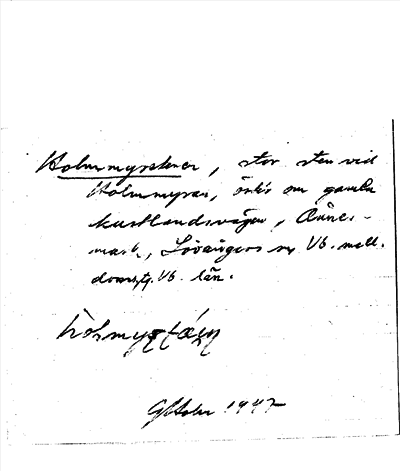 Holmmyrstenen, stor sten vid
Holmmyran, ö om gamla
kustlandsvägen, Önnes-
mark, Lövångers sn Vb. mell.
doms. Vb. län.
Oktober 1947